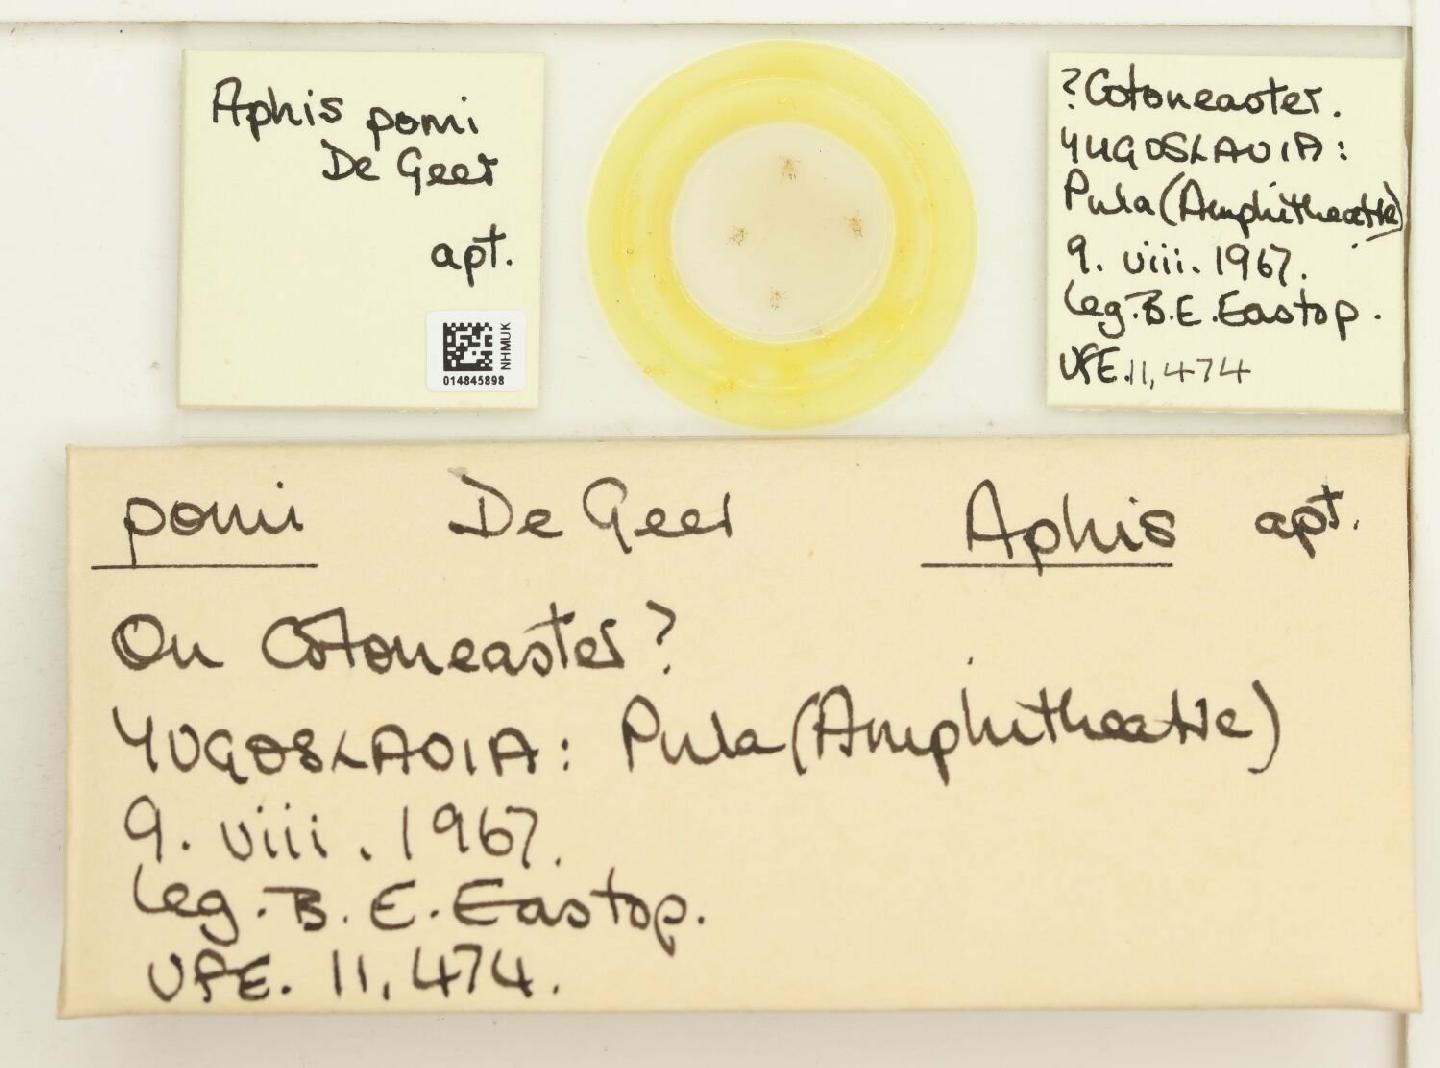 Aphis pomi
De Geer
apt.
NHMUK
014845898
?Cotoneaster.
YUGOSLAVIA:
Pula (Amphitheatre)
9. viii. 1967.
leg. B. E. Eastop.
VFE. 11,474
pomi De Geer Aphis apt.
On Cotoneaster?
YUGOSLAVIA: Pula (Amphitheatre)
9. viii. 1967.
leg. B. E. Eastop.
VFE. 11,474.